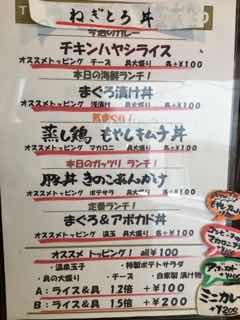 ねぎとろ丼
今週のカレー
チキンハヤシライス
オススメトッピング チーズ 具大盛り 各+¥100
本日の海鮮ランチ!
まぐろ漬け丼
オススメトッピング 浅漬け 具大盛り 各+¥100
気まぐれ!
蒸し鶏 もやしキムチ丼
オススメトッピング マカロニ 具大盛り 各+¥100
本日のガッツリ ランチ!
豚丼 きのこあんかけ
オススメトッピング ポテサラ 具大盛り 各+¥100
定番ランチ!
まぐろ&アボカド丼
オススメトッピング 温玉 具大盛り 各+¥100
オススメ トッピング! all¥100
・温泉玉子 ・特製ポテトサラダ
・具の大盛り ・チーズ ・自家製 漬け物
A:ライス&具 1.2倍 +¥100
B:ライス&具 1.5倍 +¥200
ミニカレー